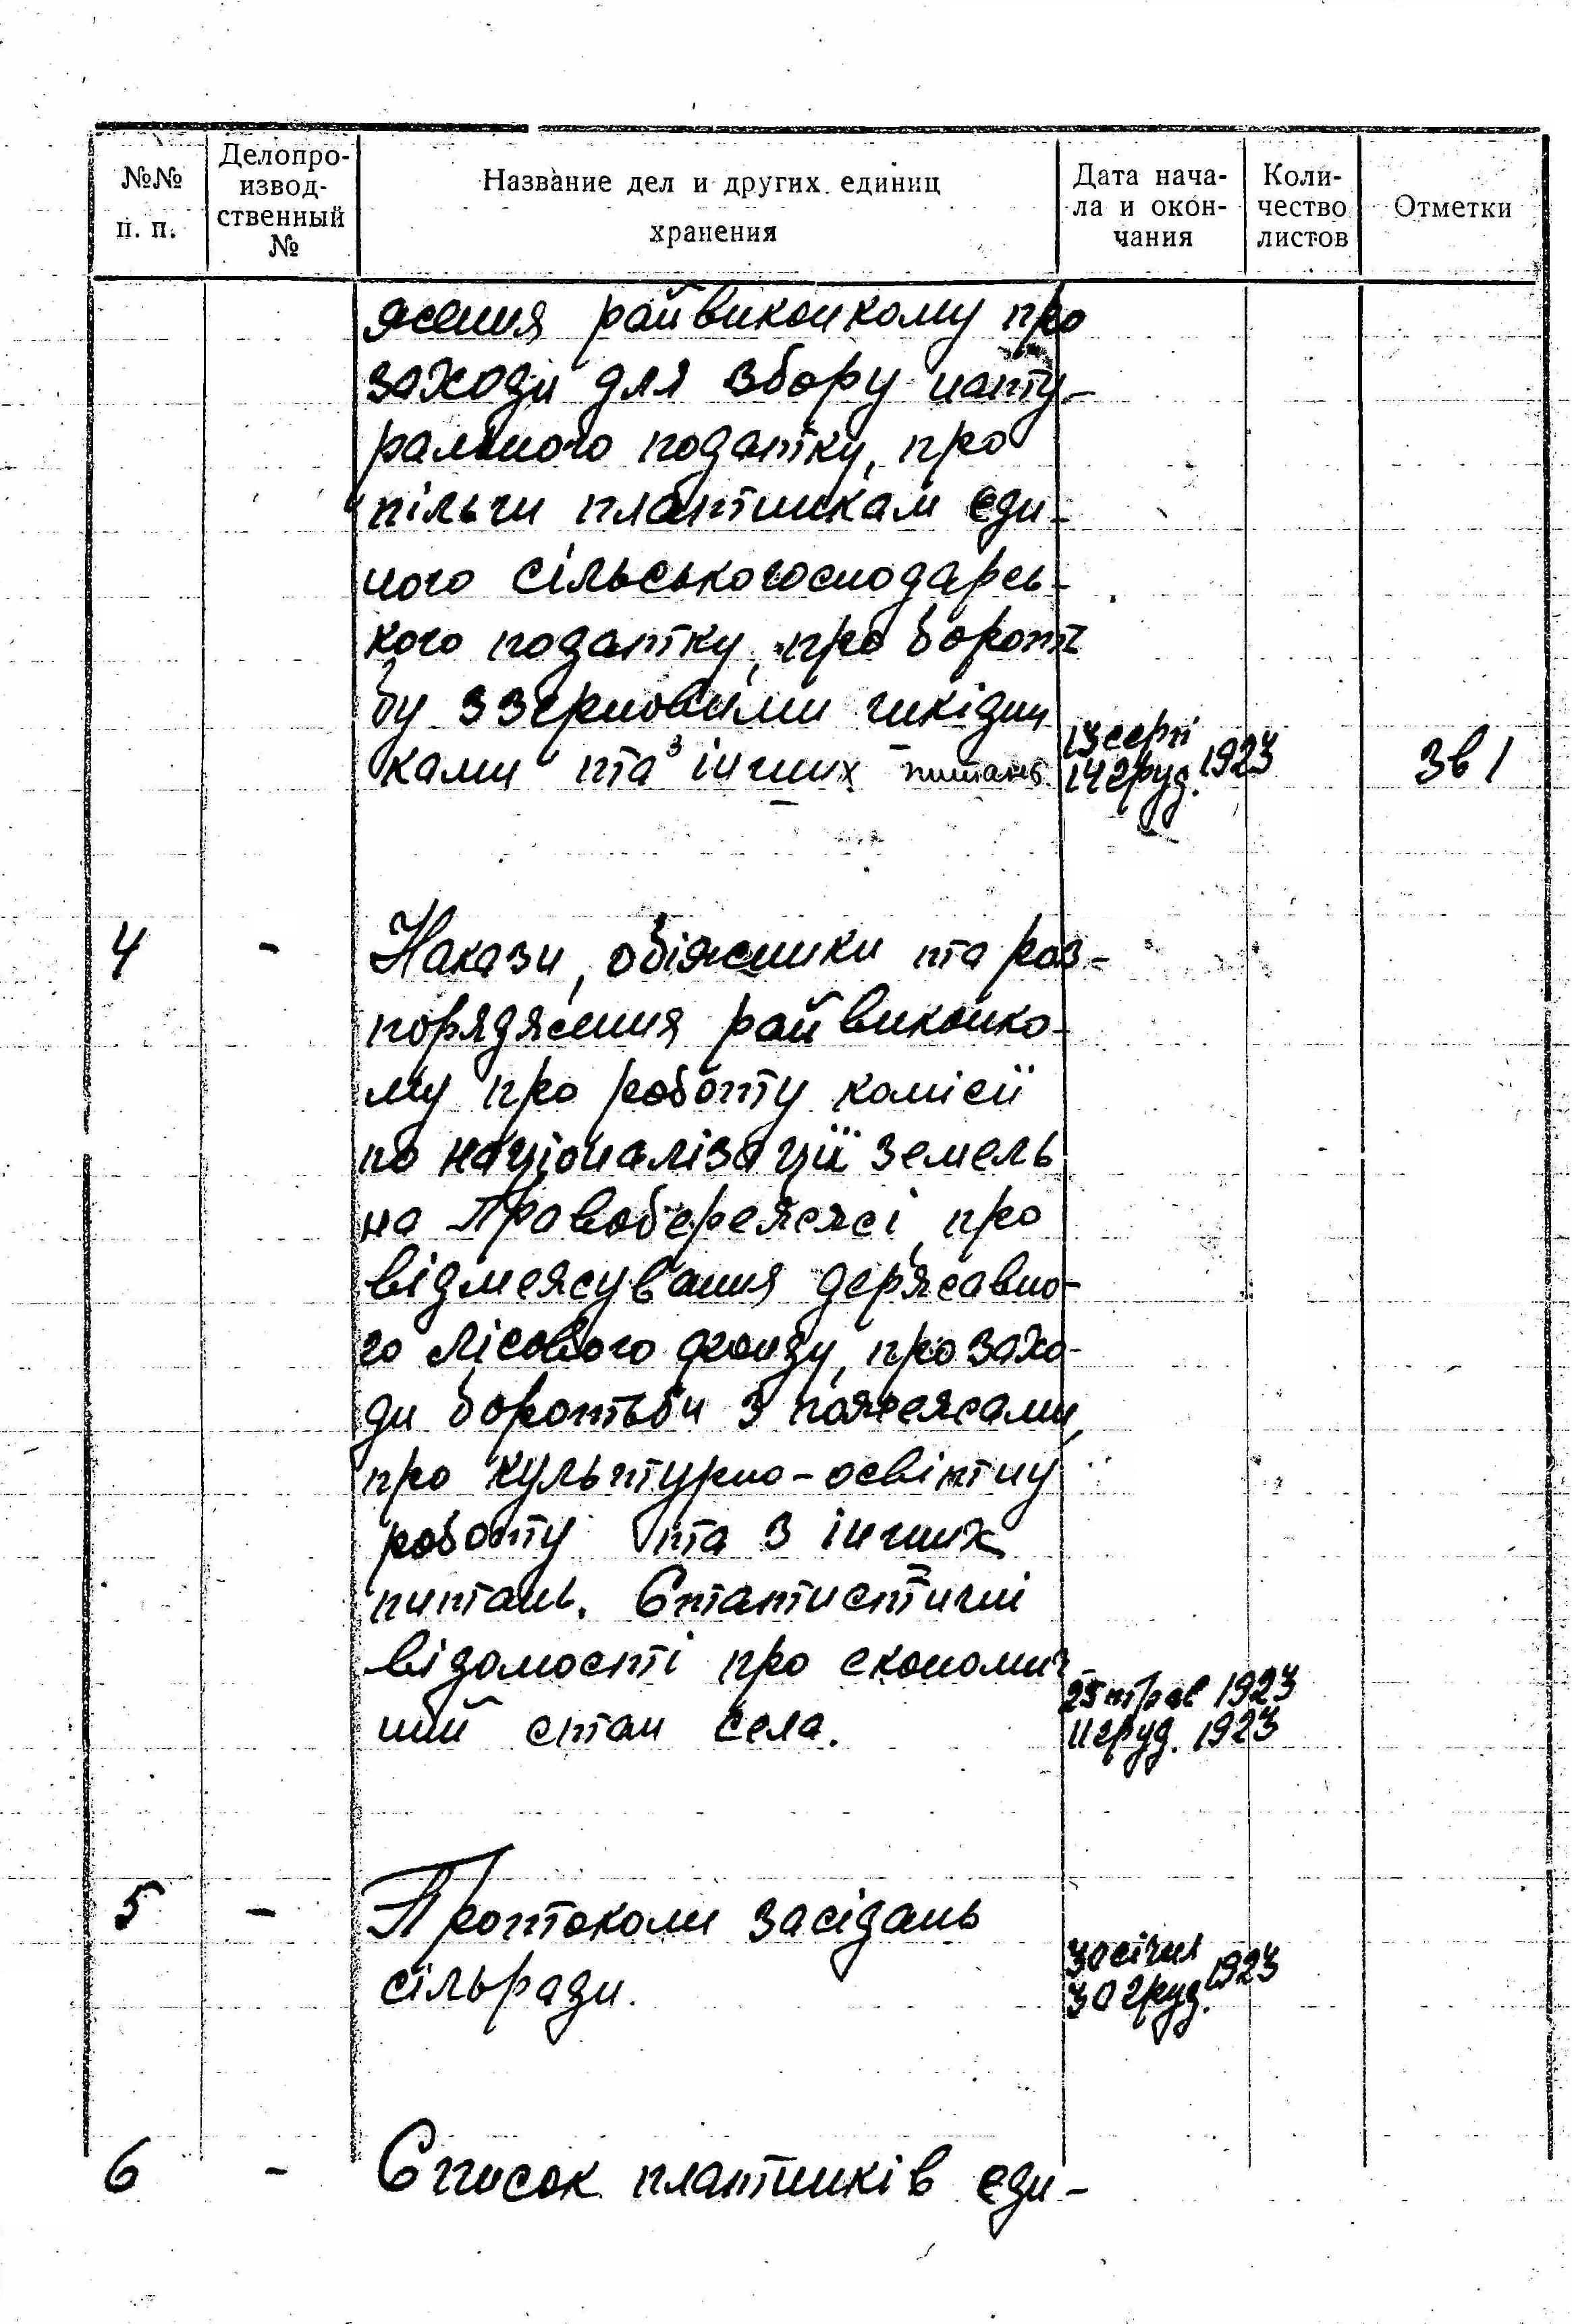 №№ п. п.
Делопро-
извод-
ственный
№
Название дел и других единиц
хранения
Дата нача-
ла и окон-
чания
Коли-
чество
листов
Отметки
ження райвиконкому про
заходи для збору нату-
рального податку, про
пільги платникам єди-
ного сільськогосподарсь-
кого податку, про бороть
бу з зерновими шкідни
ками та з інших питань
13 серп
14 груд. 1923
Зв 1
4 - Накази, обіжники та роз-
порядження райвиконко-
му про роботу комісії
по націоналізації земель
на Правобережжі, про
відмежування державно-
го лісового фонду, про захо-
ди боротьби з пожежами,
про культурно-освітну
роботу та з інших
питань. Статистичні
відомості про економіч-
ний стан села.
25 трав 1923
11 груд. 1923
5 - Протоколи засідань
сільради.
30 січня
30 груд. 1923
6 - Список платників єди-